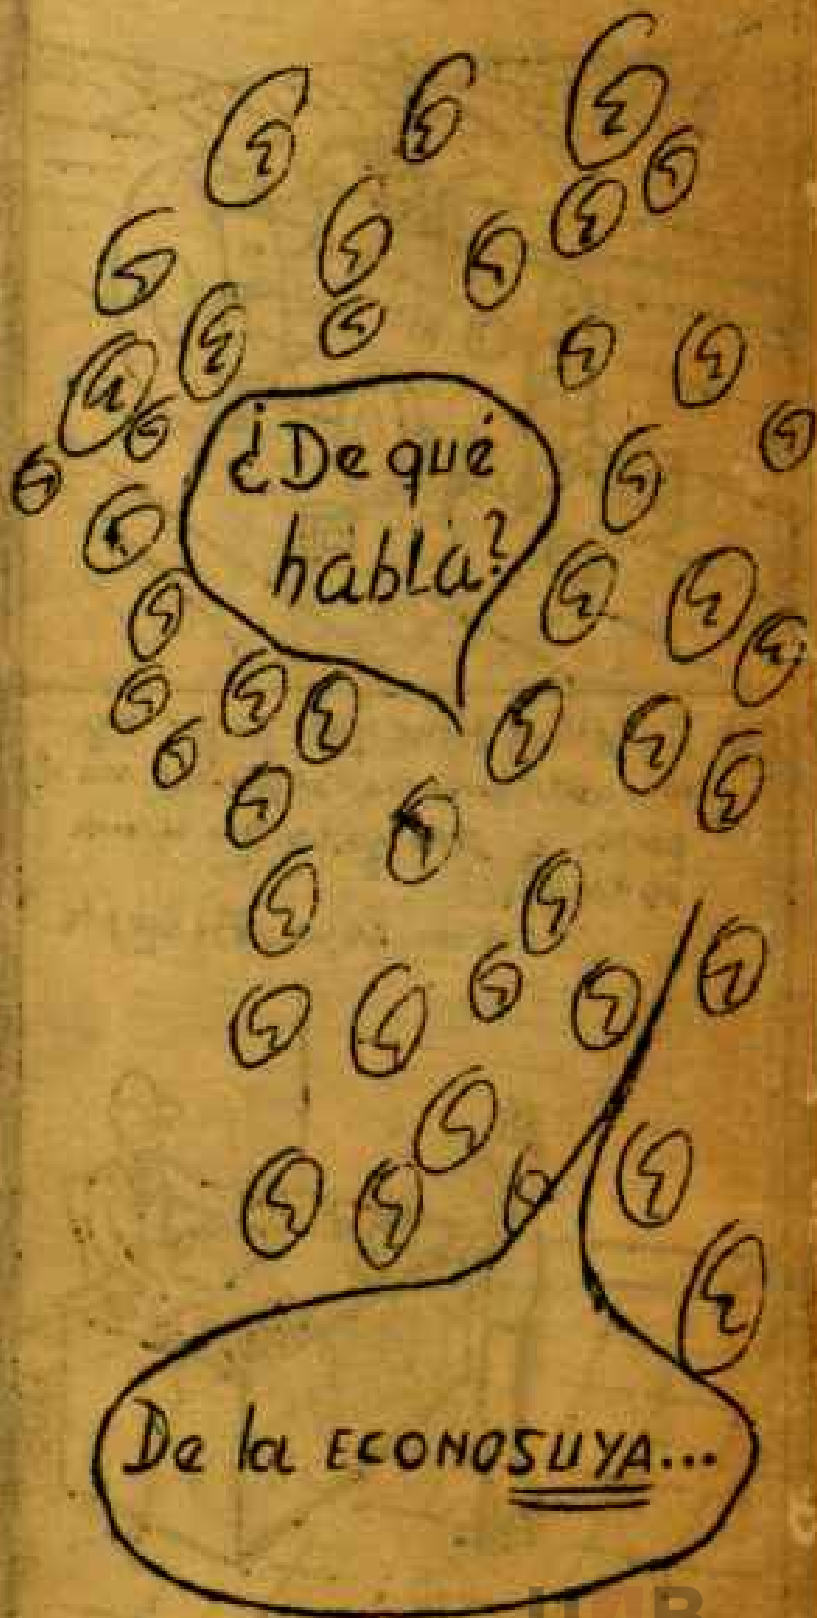 ¿De qué
habla?
De la ECONOSUYA...